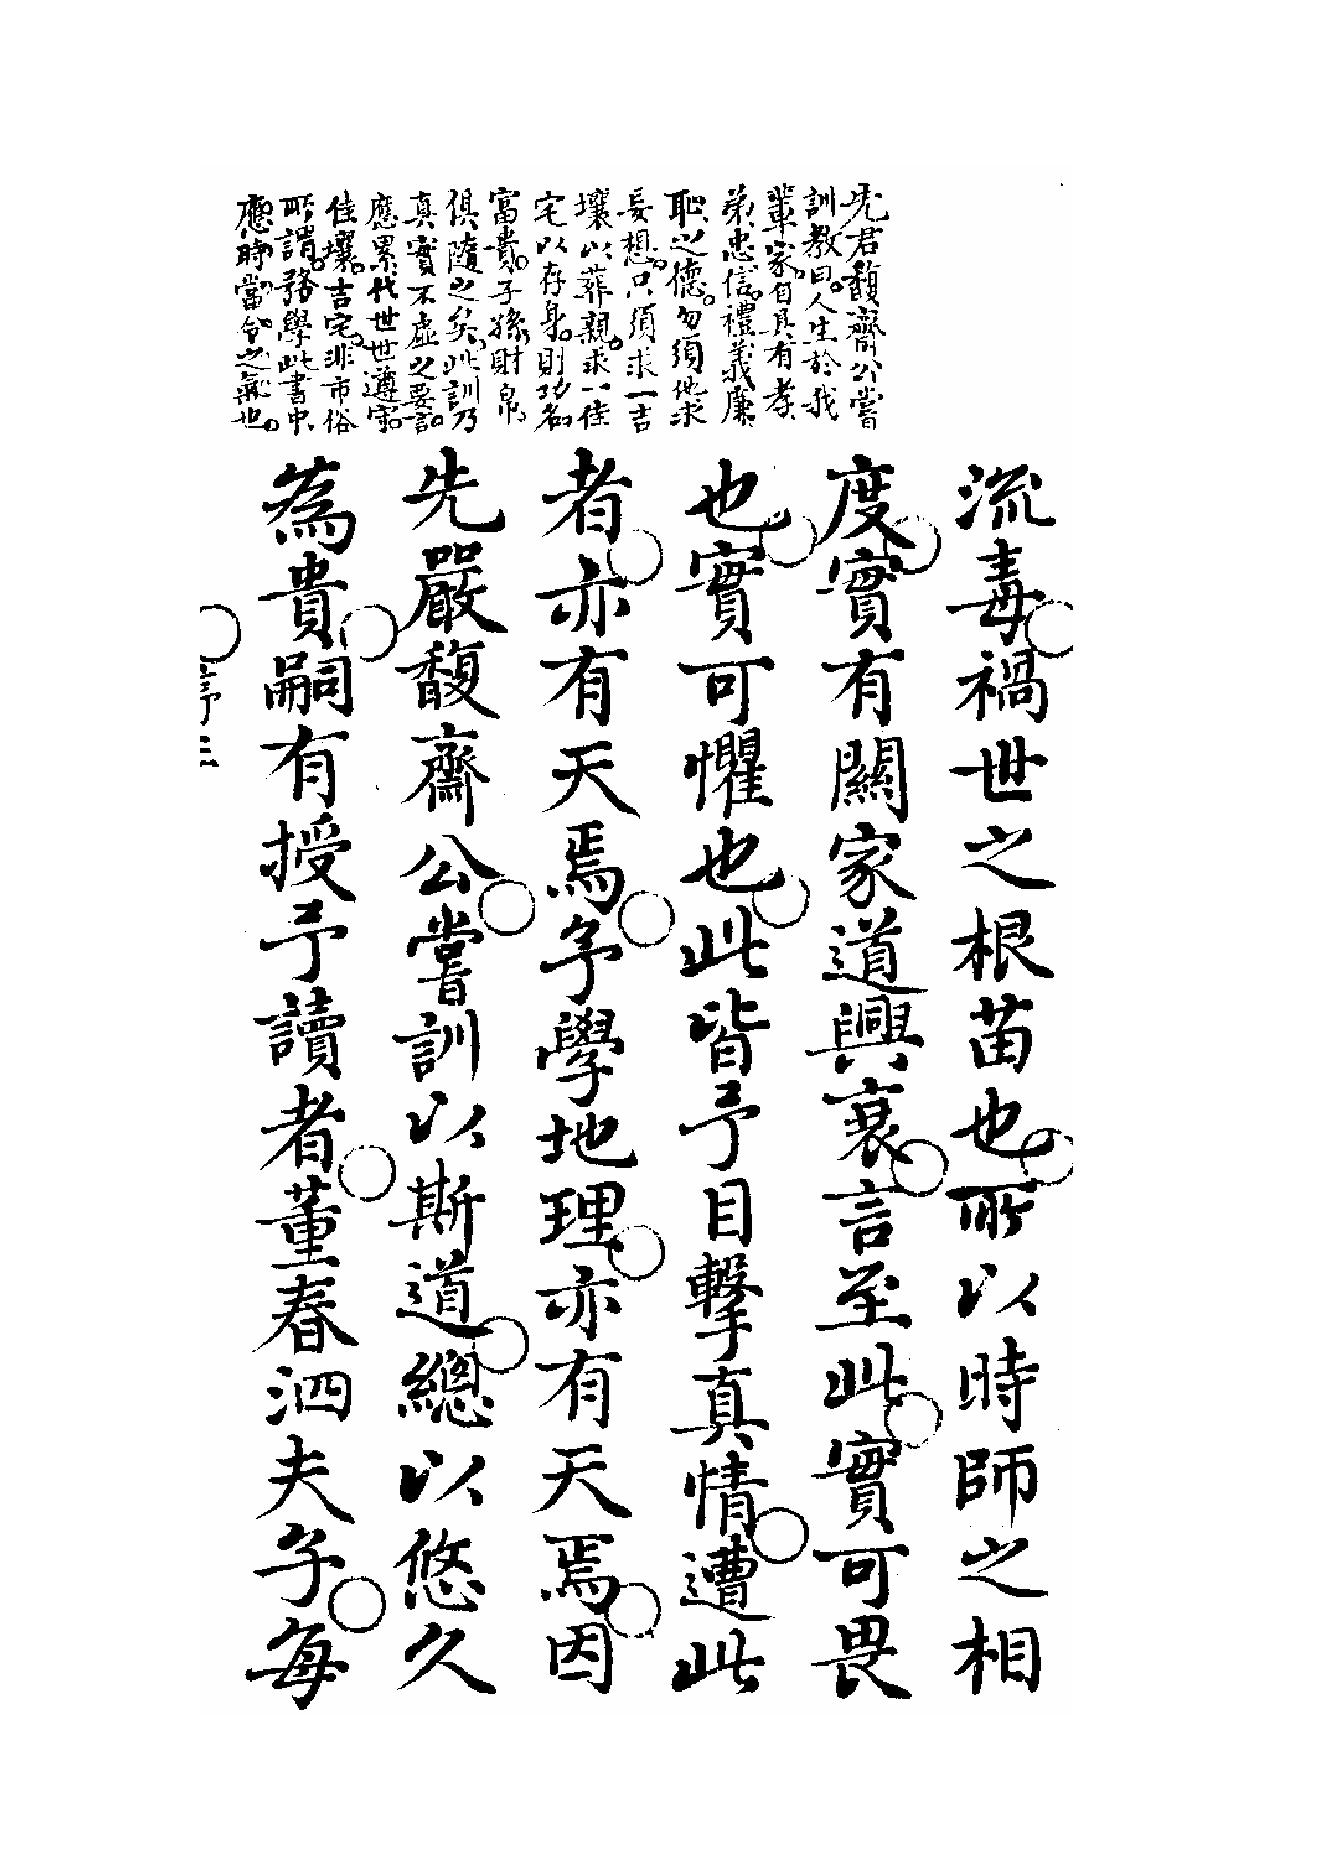 先君馥齋公嘗
訓教曰。人生於我
輩家。自具有孝
弟忠信。禮義廉
恥之德。勿須他求
妄想。只須求一吉
壤以葬親。求一佳
宅以存身。則功名
富貴。子孫財帛。
俱隨之矣。此訓乃
真實不虛之要言。
應累代世世遵守。
佳壤。吉宅。非市俗
所謂。務學此書中、
應時當令之氣也。
流毒禍世之根苗也所以時師之相
度實有關家道興衰言至此實可畏
也實可懼也此皆予目擊真情遭此
者亦有天焉予學地理亦有天焉因
先嚴馥齋公嘗訓以斯道總以悠久
為貴嗣有授予讀者董春泗夫子每